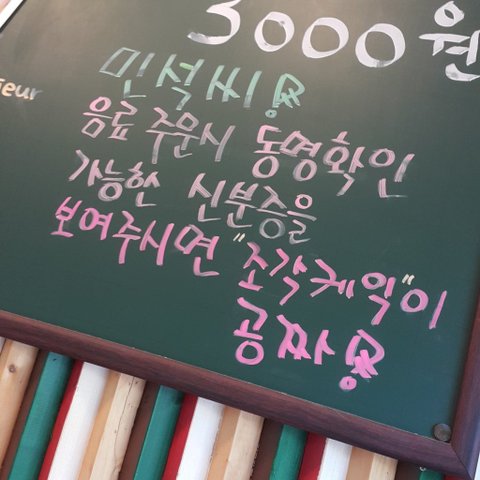 3000원
ieur
민석씨!
음료 주문시 동명확인
가능한 신분증을
보여주시면 "조각케익"이
공짜!